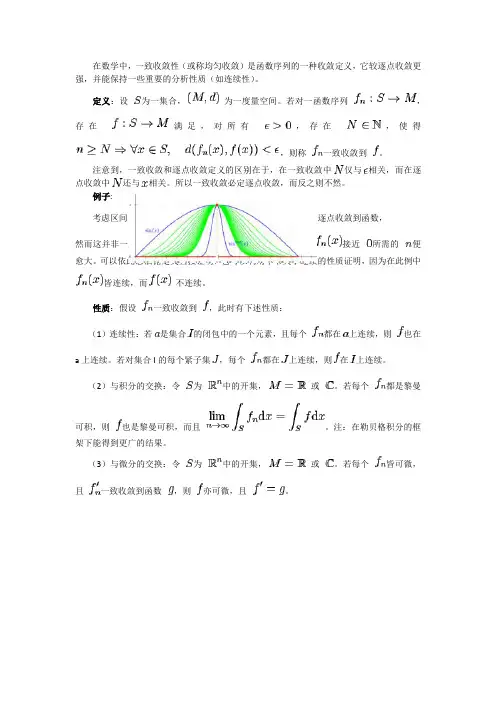 在数学中，一致收敛性（或称均匀收敛）是函数序列的一种收敛定义，它较逐点收敛更
强，并能保持一些重要的分析性质（如连续性）。
定义：设 S为一集合，(M, d) 为一度量空间。若对一函数序列 fₙ : S → M，
存在 f : S → M 满足，对所有 ϵ > 0，存在 N ∈ ℕ，使得
n ≥ N ⇒ ∀x ∈ S, d(fₙ(x), f(x)) < ϵ，则称 fₙ一致收敛到 f。
注意到，一致收敛和逐点收敛定义的区别在于，在一致收敛中N仅与ϵ相关，而在逐
点收敛中N还与x相关。所以一致收敛必定逐点收敛，而反之则不然。
例子：
考虑区间 逐点收敛到函数，
sin(x)
然而这并非一 fₙ(x)接近 0所需的 n便
愈大。可以依 的性质证明，因为在此例中
fₙ(x)皆连续，而f(x) 不连续。
性质：假设 fₙ一致收敛到 f，此时有下述性质：
（1）连续性：若a是集合I的闭包中的一个元素，且每个 fₙ都在a上连续，则 f也在
a上连续。若对集合I的每个紧子集J，每个 fₙ都在J上连续，则f在I上连续。
（2）与积分的交换：令 S为 ℝⁿ中的开集，M = ℝ 或 ℂ。若每个 fₙ都是黎曼
可积，则 f也是黎曼可积，而且 lim n→∞ ∫_S fₙdx = ∫_S fdx。注：在勒贝格积分的框
架下能得到更广的结果。
（3）与微分的交换：令 S为 ℝⁿ中的开集，M = ℝ 或 ℂ。若每个 fₙ皆可微，
且 f′ₙ一致收敛到函数 g，则 f亦可微，且 f′ = g。